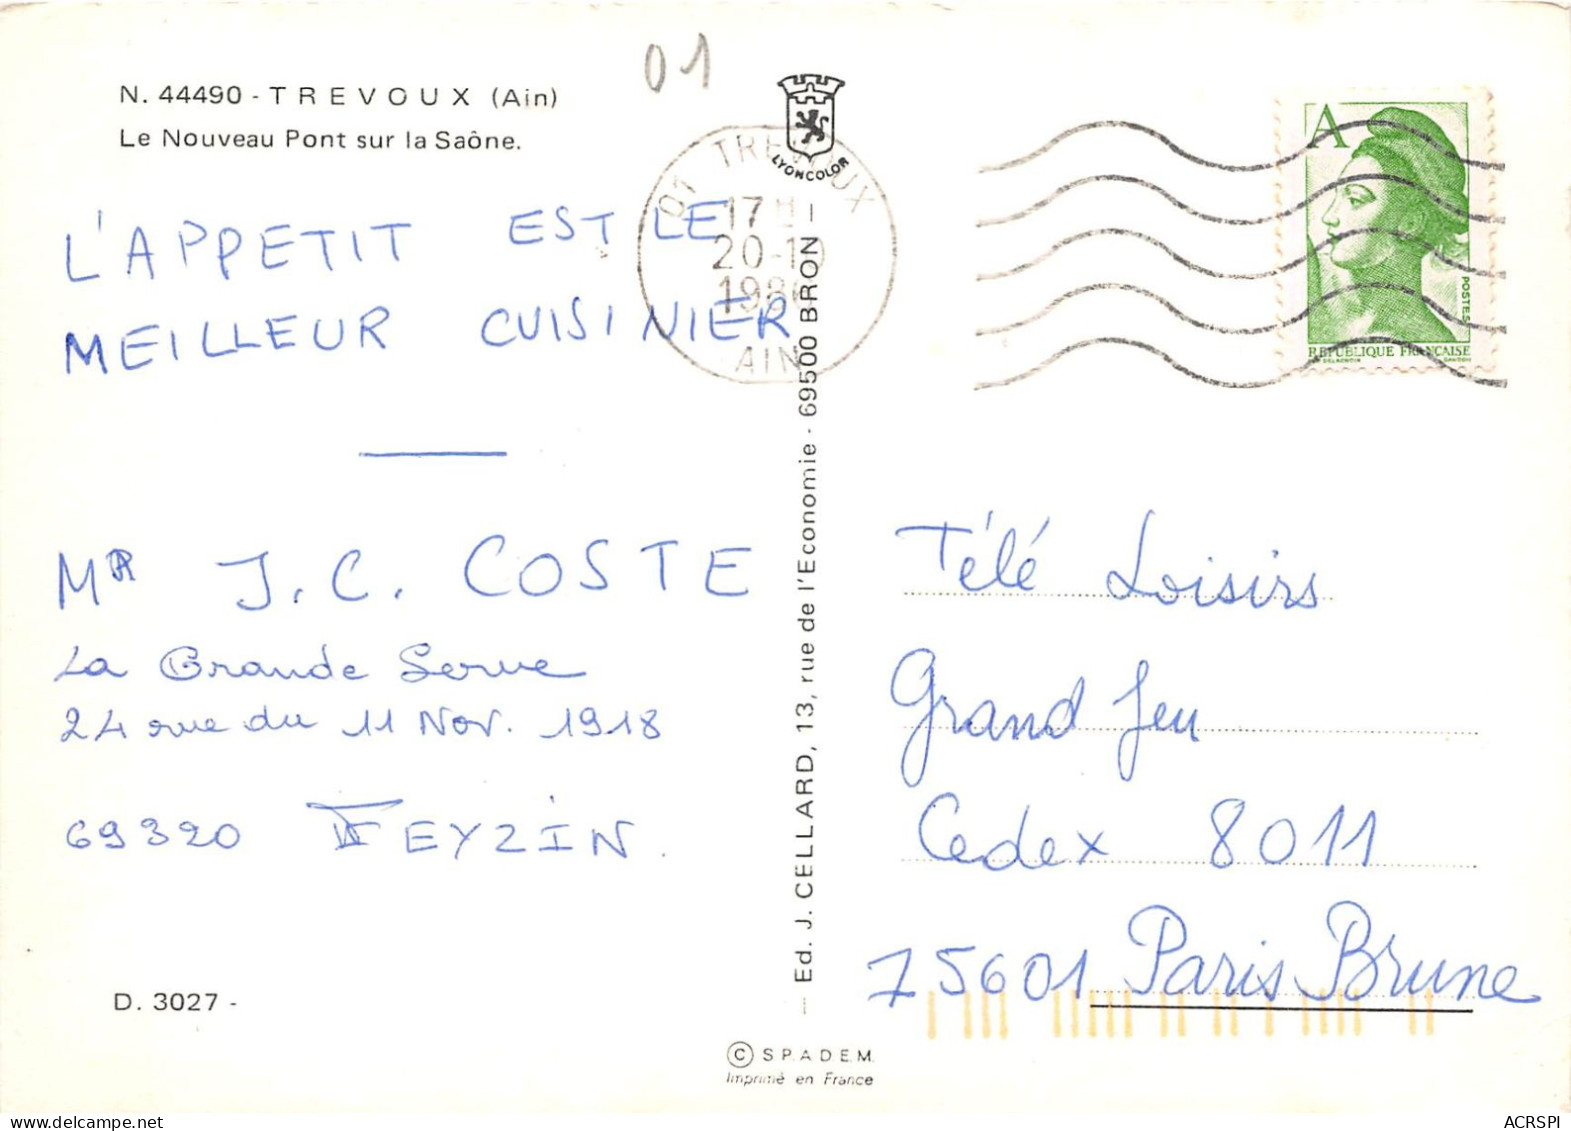 01
N. 44490 - TREVOUX (Ain)
Le Nouveau Pont sur la Saône.
LYONCOLOR
01 TREVOUX
17 H
20-10
1986
AIN
A
POSTES
RÉPUBLIQUE FRANÇAISE
L'APPETIT EST LE
MEILLEUR CUISINIER
MR J. C. COSTE
La Grande Serve
24 rue du 11 Nov. 1918
69320 FEYZIN.
D. 3027 -
— Ed. J. CELLARD, 13, rue de l'Economie - 69500 BRON —
Télé Loisirs
Grand Jeu
Cedex 8011
75601 Paris Brune
© S.P.A.D.E.M.
Imprimé en France
delcampe.net
ACRSPI